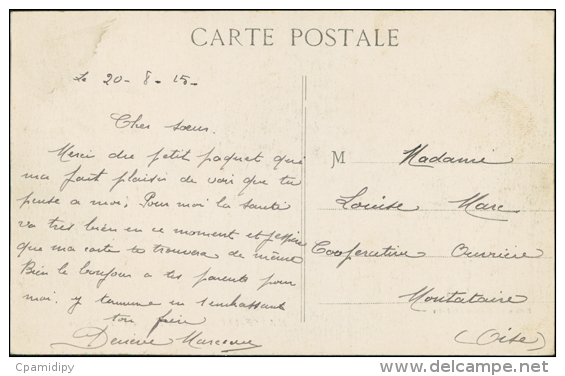 CARTE POSTALE
Le 20-8-15-
Cher sœur.
Merci du petit paquet qui
ma fait plaisir de voir que tu
pense a moi; Pour moi la santé
va tres bien en ce moment et j'espère
que ma carte te trouvera de même
Bien le bonjour a tes parents pour
moi. Je termine en t'embrassant
ton frère
M Madame
Louise Marc
Cooperative Ouvrière
Montataire
(Oise)
Cpamidipy
www.delcampe.net